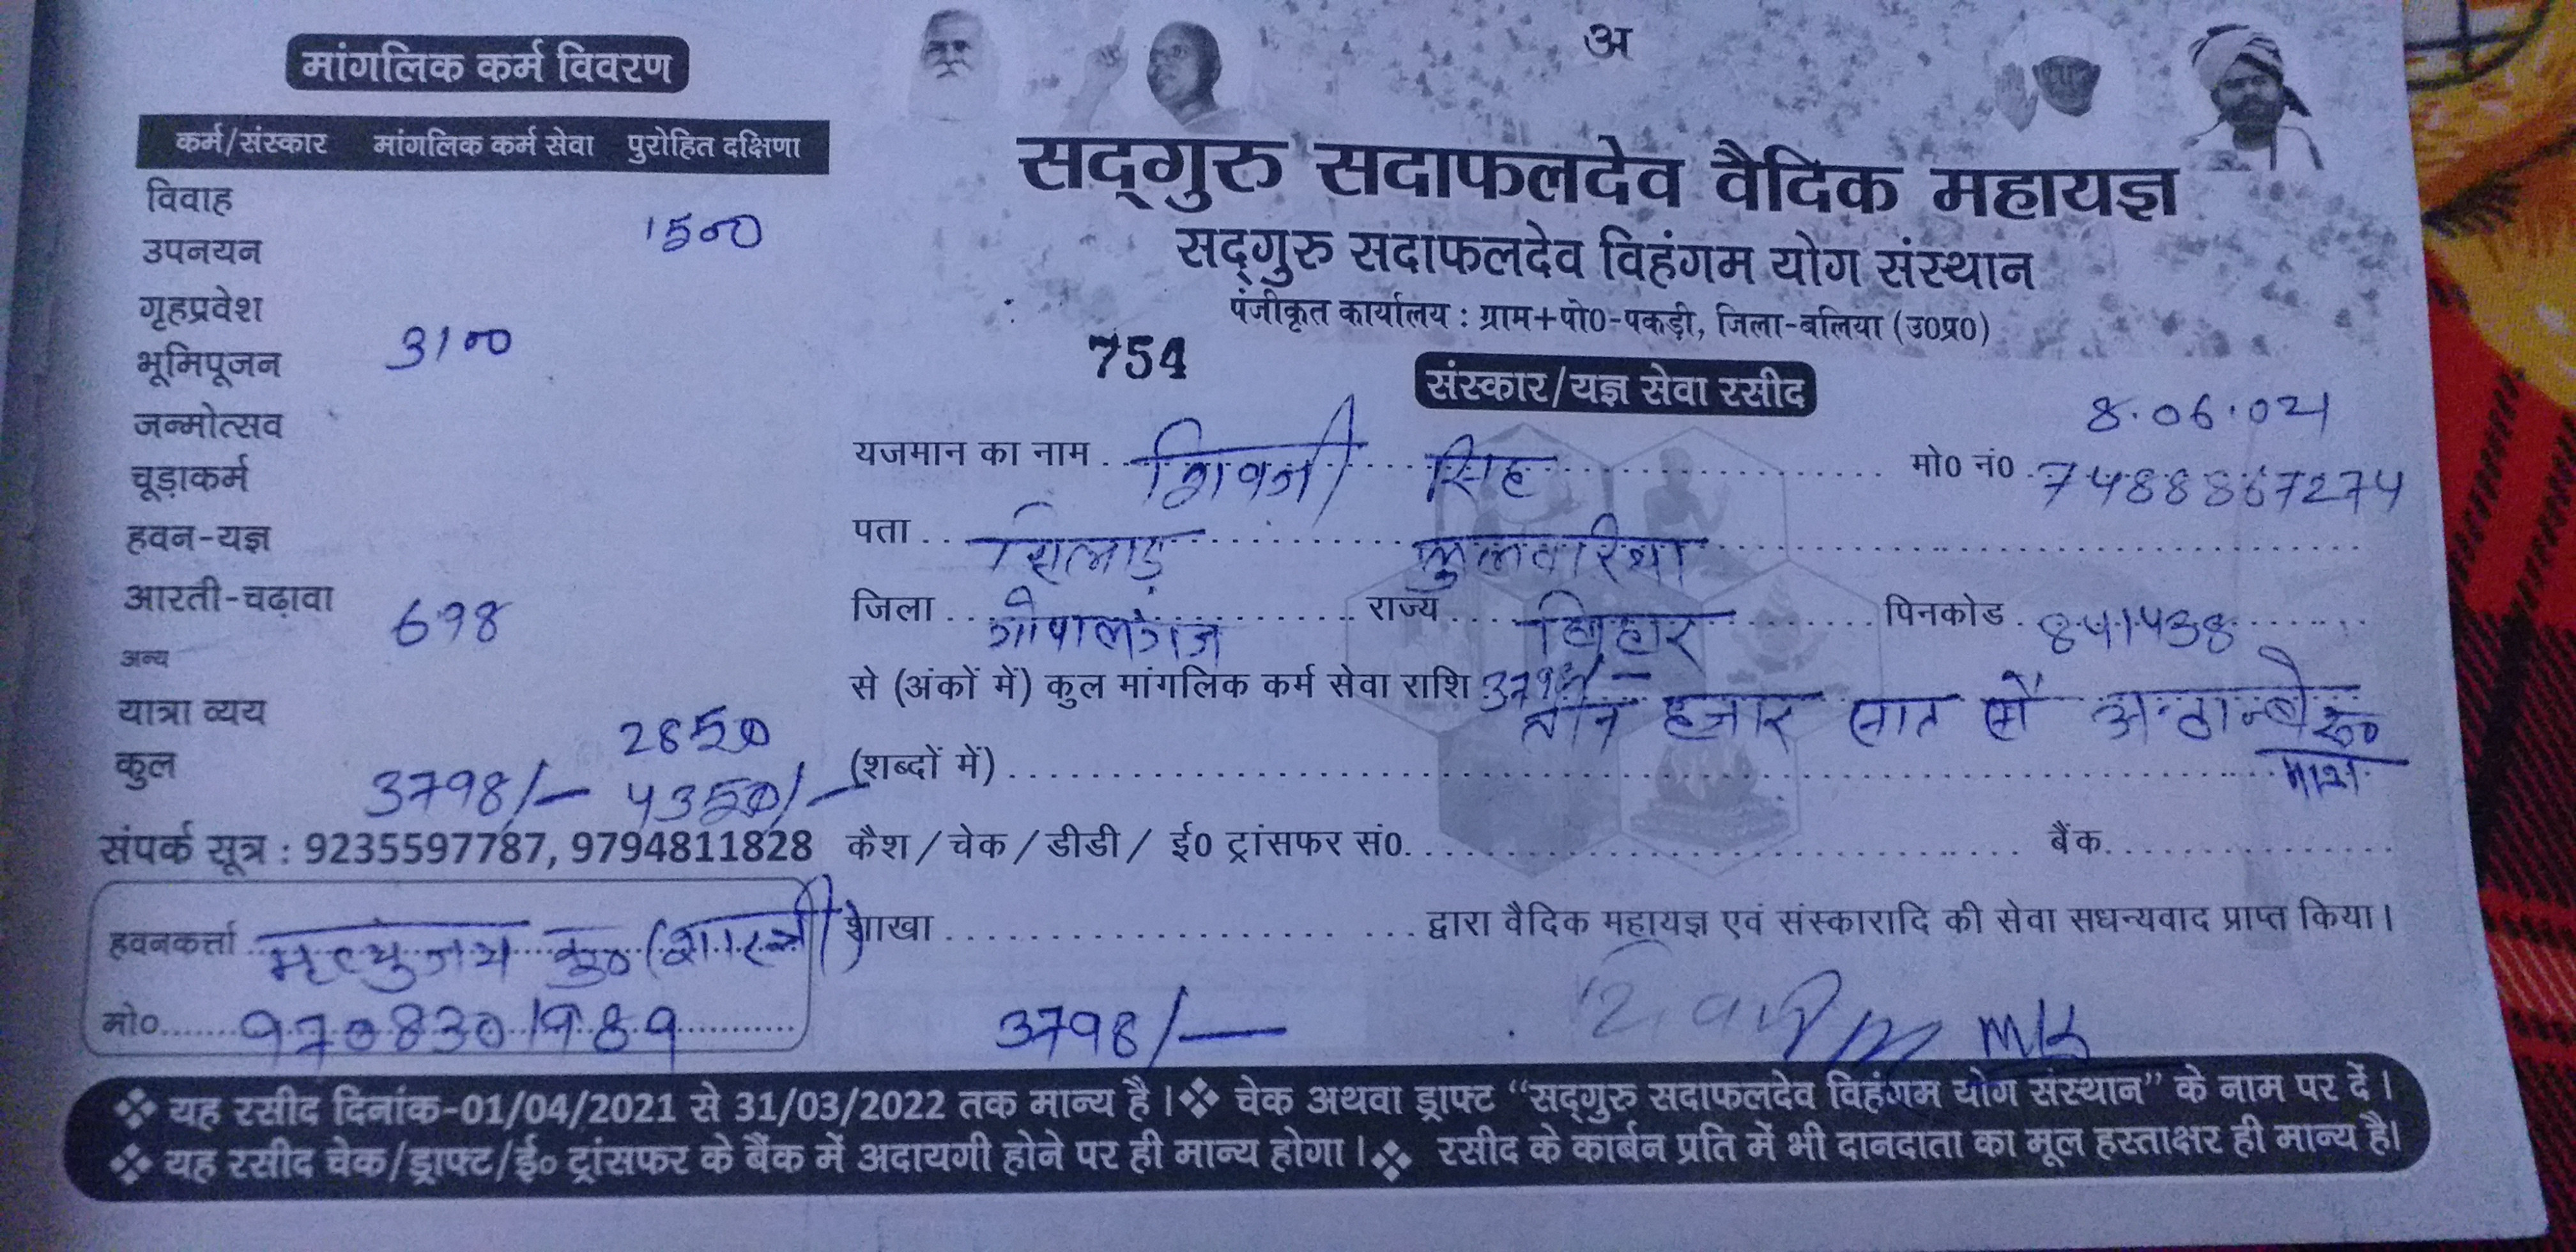 मांगलिक कर्म विवरण
कर्म/संस्कार मांगलिक कर्म सेवा पुरोहित दक्षिणा
विवाह
1500
उपनयन
गृहप्रवेश
3100
भूमिपूजन
जन्मोत्सव
चूड़ाकर्म
हवन-यज्ञ
आरती-चढ़ावा
698
अन्य
यात्रा व्यय
2850
कुल
3798/- 4350/-
संपर्क सूत्र : 9235597787, 9794811828
हवनकर्त्ता मृत्युंजय कु० (शास्त्री)
मो० 9708301989
अ
सद्गुरु सदाफलदेव वैदिक महायज्ञ
सद्गुरु सदाफलदेव विहंगम योग संस्थान
पंजीकृत कार्यालय : ग्राम+पो0-पकड़ी, जिला-बलिया (उ0प्र0)
754
संस्कार/यज्ञ सेवा रसीद
8.06.021
यजमान का नाम शिवजी सिंह मो0 नं0 7488867274
पता
जिला गोपालगंज राज्य बिहार पिनकोड 841438
से (अंकों में) कुल मांगलिक कर्म सेवा राशि 3798/-
(शब्दों में) तीन हजार सात सौ अन्ठान्बे रु० मात्र
कैश / चेक / डीडी / ई0 ट्रांसफर सं0 बैंक
शाखा द्वारा वैदिक महायज्ञ एवं संस्कारादि की सेवा सधन्यवाद प्राप्त किया।
3798/-
❖ यह रसीद दिनांक-01/04/2021 से 31/03/2022 तक मान्य है। ❖ चेक अथवा ड्राफ्ट “सद्गुरु सदाफलदेव विहंगम योग संस्थान” के नाम पर दें।
❖ यह रसीद चेक/ड्राफ्ट/ई० ट्रांसफर के बैंक में अदायगी होने पर ही मान्य होगा। ❖ रसीद के कार्बन प्रति में भी दानदाता का मूल हस्ताक्षर ही मान्य है।